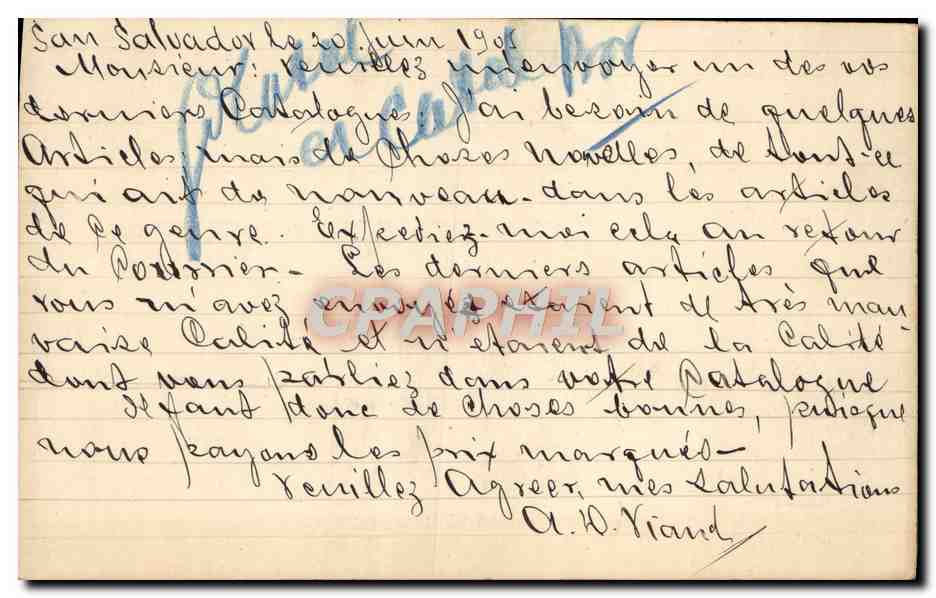 San Salvador le 20 Juin 1905
Monsieur: veuillez m'envoyer un des vos
derniers Catalogues. J'ai besoin de quelques
Articles, mais de choses novelles, de tout-ce
qui ait de nouveau dans les articles
de ce genre. Expediez-moi cela au retour
du Courrier - Les derniers articles que
vous m'avez envoyés etaient de très mau
vaise Calité et n'etaient de la Calité
dont vous parliez dans votre Catalogue
Il faut donc de choses bonnes, puisque
nous payons les prix marqués -
Veuillez Agreer, mes salutations
A. D. Viaud
CPAPHIL